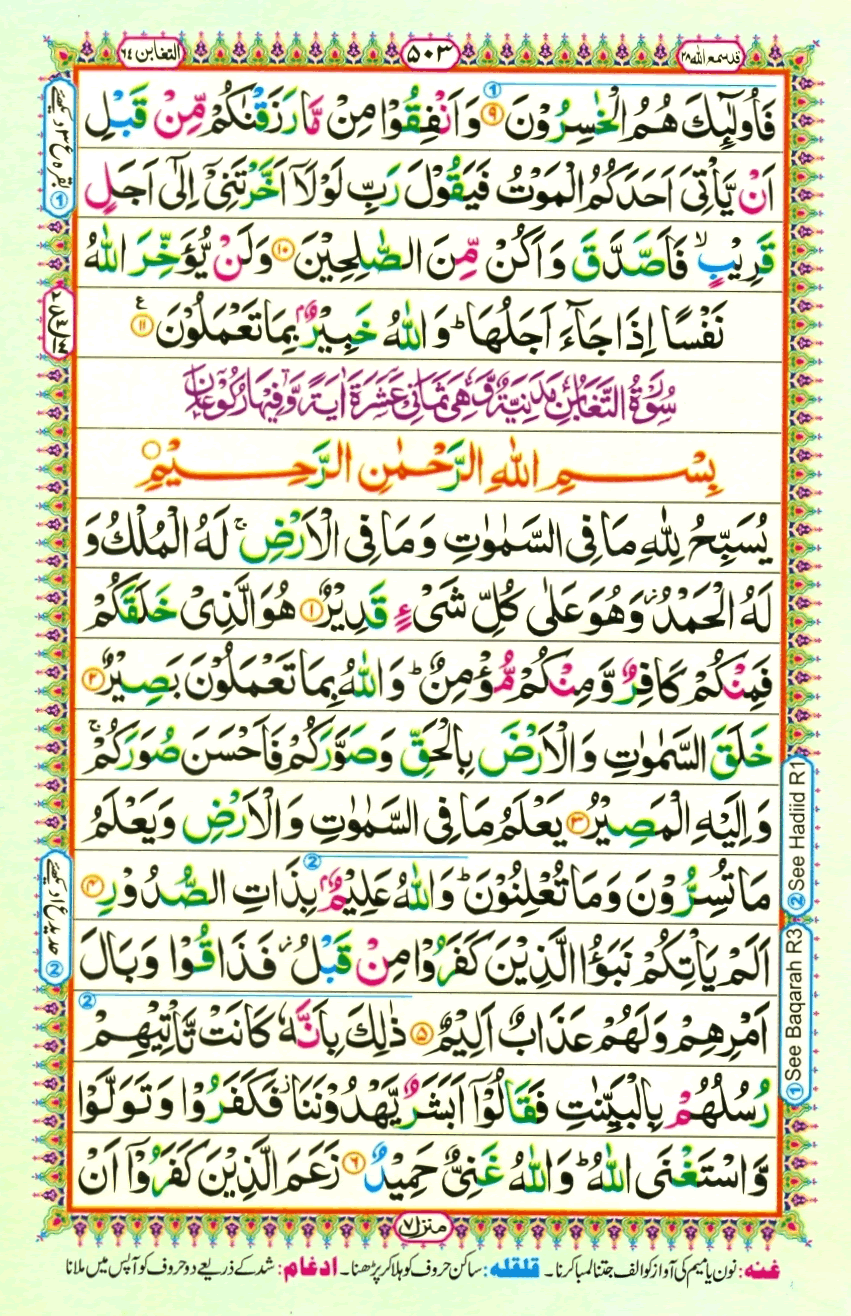 قد سمع الله ۲۸
۵۰۳
التغابن ۶۴
فَاُولٰٓئِكَ هُمُ الْخٰسِرُوْنَ ۹ وَاَنْفِقُوْا مِنْ مَّا رَزَقْنٰكُمْ مِّنْ قَبْلِ
اَنْ يَّاْتِىَ اَحَدَكُمُ الْمَوْتُ فَيَقُوْلَ رَبِّ لَوْلَاۤ اَخَّرْتَنِىْۤ اِلٰٓى اَجَلٍ
قَرِيْبٍۙ فَاَصَّدَّقَ وَاَكُنْ مِّنَ الصّٰلِحِيْنَ ۱۰ وَلَنْ يُّؤَخِّرَ اللّٰهُ
نَفْسًا اِذَا جَآءَ اَجَلُهَاؕ وَاللّٰهُ خَبِيْرٌۢ بِمَا تَعْمَلُوْنَ ۱۱ ع
سُوْرَةُ التَّغَابُنِ مَدَنِيَّةٌ وَّهِىَ ثَمَانِىَ عَشَرَةَ اٰيَةً وَّفِيْهَا رُكُوْعَانِ
بِسْمِ اللّٰهِ الرَّحْمٰنِ الرَّحِيْمِ
يُسَبِّحُ لِلّٰهِ مَا فِى السَّمٰوٰتِ وَمَا فِى الْاَرْضِۚ لَهُ الْمُلْكُ وَ
لَهُ الْحَمْدُؗ وَهُوَ عَلٰى كُلِّ شَىْءٍ قَدِيْرٌ ۱ هُوَ الَّذِىْ خَلَقَكُمْ
فَمِنْكُمْ كَافِرٌ وَّمِنْكُمْ مُّؤْمِنٌؕ وَاللّٰهُ بِمَا تَعْمَلُوْنَ بَصِيْرٌ ۲
خَلَقَ السَّمٰوٰتِ وَالْاَرْضَ بِالْحَقِّ وَصَوَّرَكُمْ فَاَحْسَنَ صُوَرَكُمْۚ
وَاِلَيْهِ الْمَصِيْرُ ۳ يَعْلَمُ مَا فِى السَّمٰوٰتِ وَالْاَرْضِ وَيَعْلَمُ
مَا تُسِرُّوْنَ وَمَا تُعْلِنُوْنَؕ وَاللّٰهُ عَلِيْمٌۢ بِذَاتِ الصُّدُوْرِ ۴
اَلَمْ يَاْتِكُمْ نَبَؤُا الَّذِيْنَ كَفَرُوْا مِنْ قَبْلُؗ فَذَاقُوْا وَبَالَ
اَمْرِهِمْ وَلَهُمْ عَذَابٌ اَلِيْمٌ ۵ ذٰلِكَ بِاَنَّهٗ كَانَتْ تَّاْتِيْهِمْ
رُسُلُهُمْ بِالْبَيِّنٰتِ فَقَالُوْۤا اَبَشَرٌ يَّهْدُوْنَنَاؗ فَكَفَرُوْا وَتَوَلَّوْا
وَّاسْتَغْنَى اللّٰهُؕ وَاللّٰهُ غَنِىٌّ حَمِيْدٌ ۶ زَعَمَ الَّذِيْنَ كَفَرُوْۤا اَنْ
② See Hadiid R1
① See Baqarah R3
② حديد ع ۱ دیکھئے
منزل ۷
غنه: نون یا میم کی آواز کو الف جتنا لمبا کرنا۔ قلقله: ساکن حروف کو ہلا کر پڑھنا۔ ادغام: شد کے ذریعے دو حروف کو آپس میں ملانا